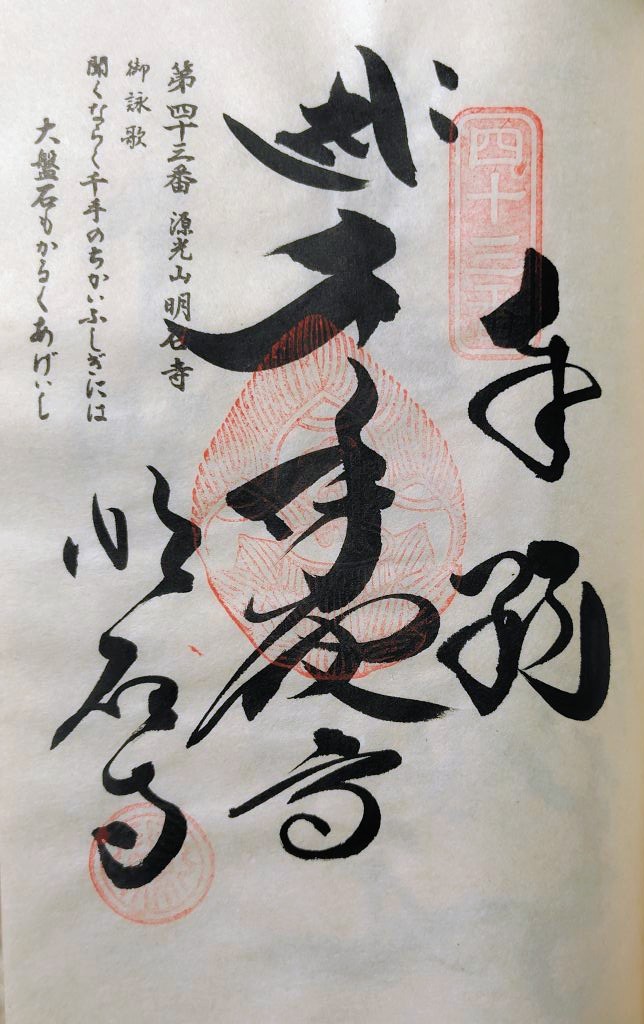 四十三番
奉納
千手
明石寺
第四十三番 源光山明石寺
御詠歌
聞くならく千手のちかいふしぎには
大盤石もかるくあげいし